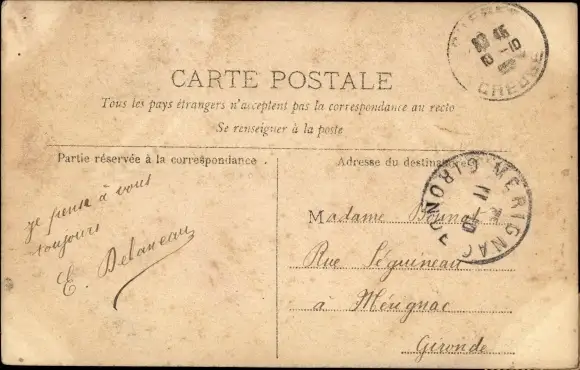 CARTE POSTALE
Tous les pays étrangers n'acceptent pas la correspondance au recto
Se renseigner à la poste
Partie réservée à la correspondance
Adresse du destinataire
je pense à vous
toujours
E. Delaneau
Madame
Rue Séguineau
à Mérignac
Gironde
MERIGNAC
GIRONDE
CREUSE